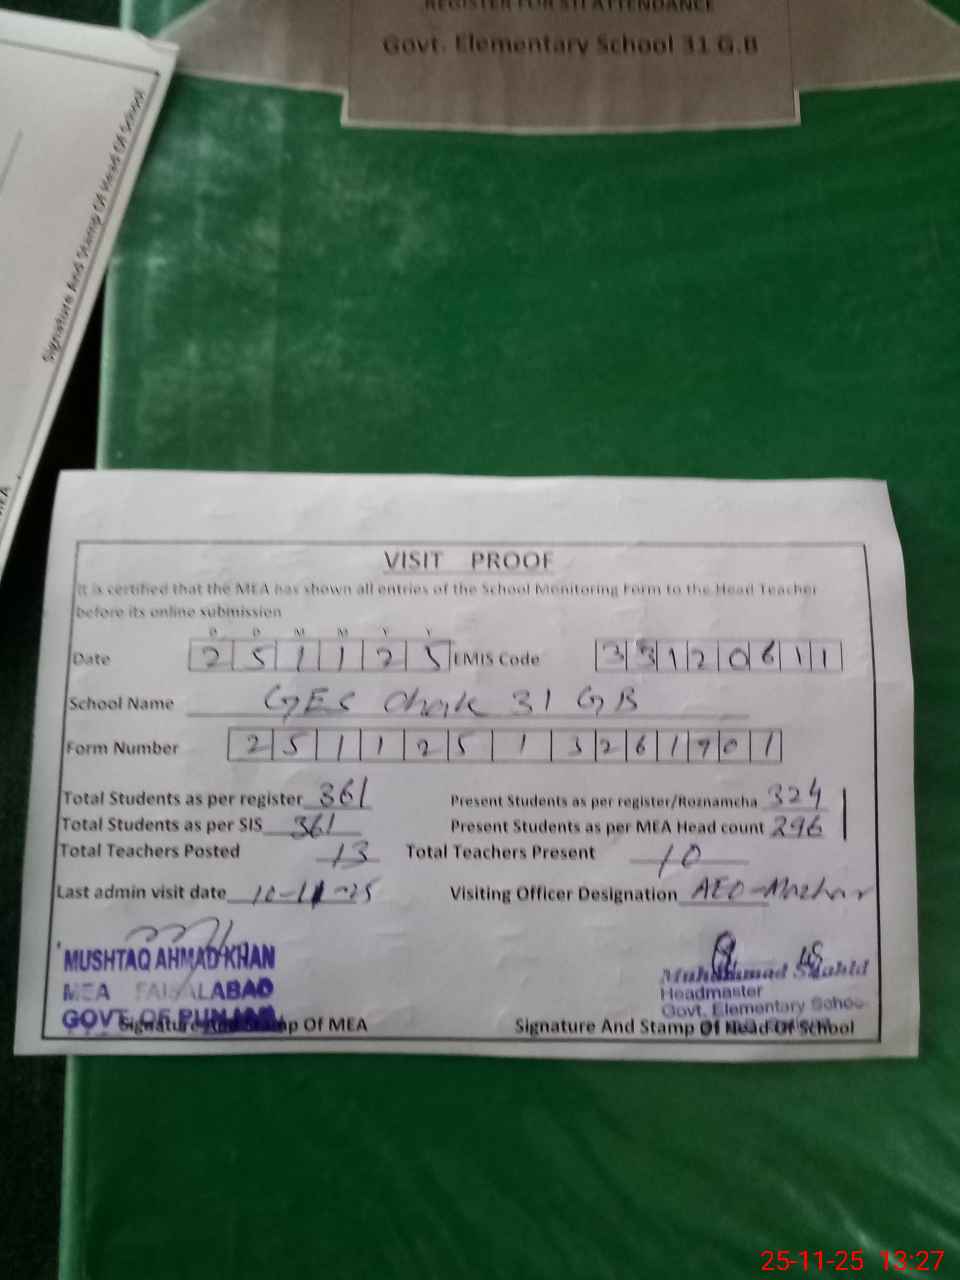 REGISTER FOR STI ATTENDANCE
Govt. Elementary School 31 G.B
Signature And Stamp Of Head Of School
MEA
VISIT PROOF
It is certified that the MEA has shown all entries of the School Monitoring Form to the Head Teacher
before its online submission
D D M M Y Y
Date 2 5 1 1 2 5 EMIS Code 3 3 1 2 0 6 1 1
School Name GES Chak 31 GB
Form Number 2 5 1 1 2 5 1 3 2 6 1 9 0 1
Total Students as per register 361 Present Students as per register/Roznamcha 324
Total Students as per SIS 361 Present Students as per MEA Head count 296
Total Teachers Posted 13 Total Teachers Present 10
Last admin visit date 10-11-25 Visiting Officer Designation AEO-Mazhar
MUSHTAQ AHMAD KHAN
MEA FAISALABAD
GOVT OF PUNJAB
Muhammad Shahid
Headmaster
Govt. Elementary School
Signature And Stamp Of MEA Signature And Stamp Of Head Of School
25-11-25 13:27